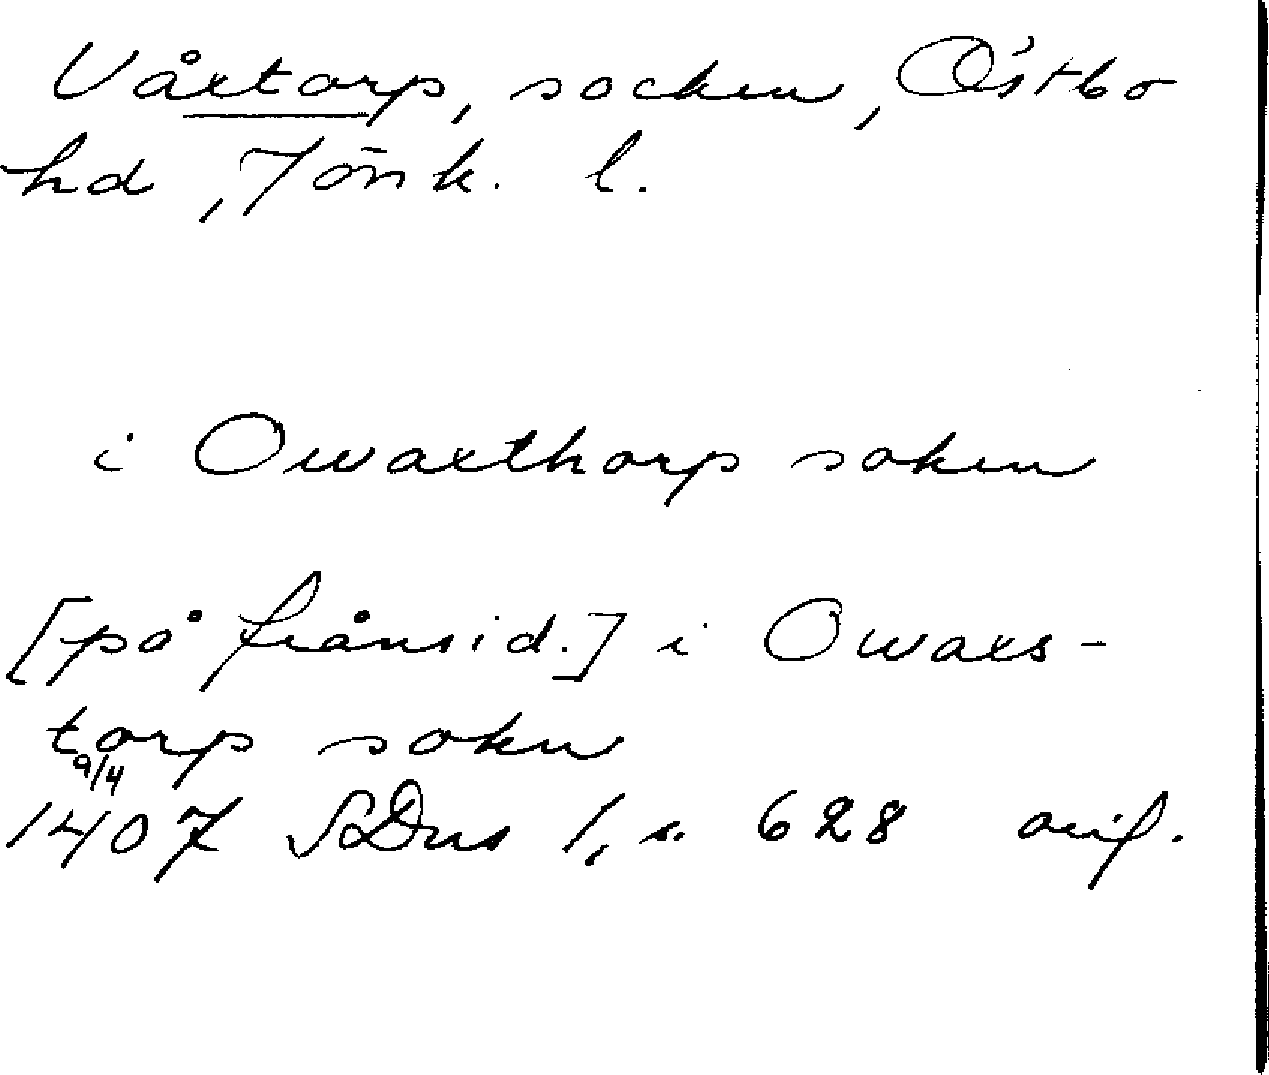 Våxtorp, socken, Östbo
hd, Jönk. l.
i Owaxthorp soken
[på frånsid.] i Owaxs-
torp sokn
9/4
1407 SDns 1, s. 628 orig.